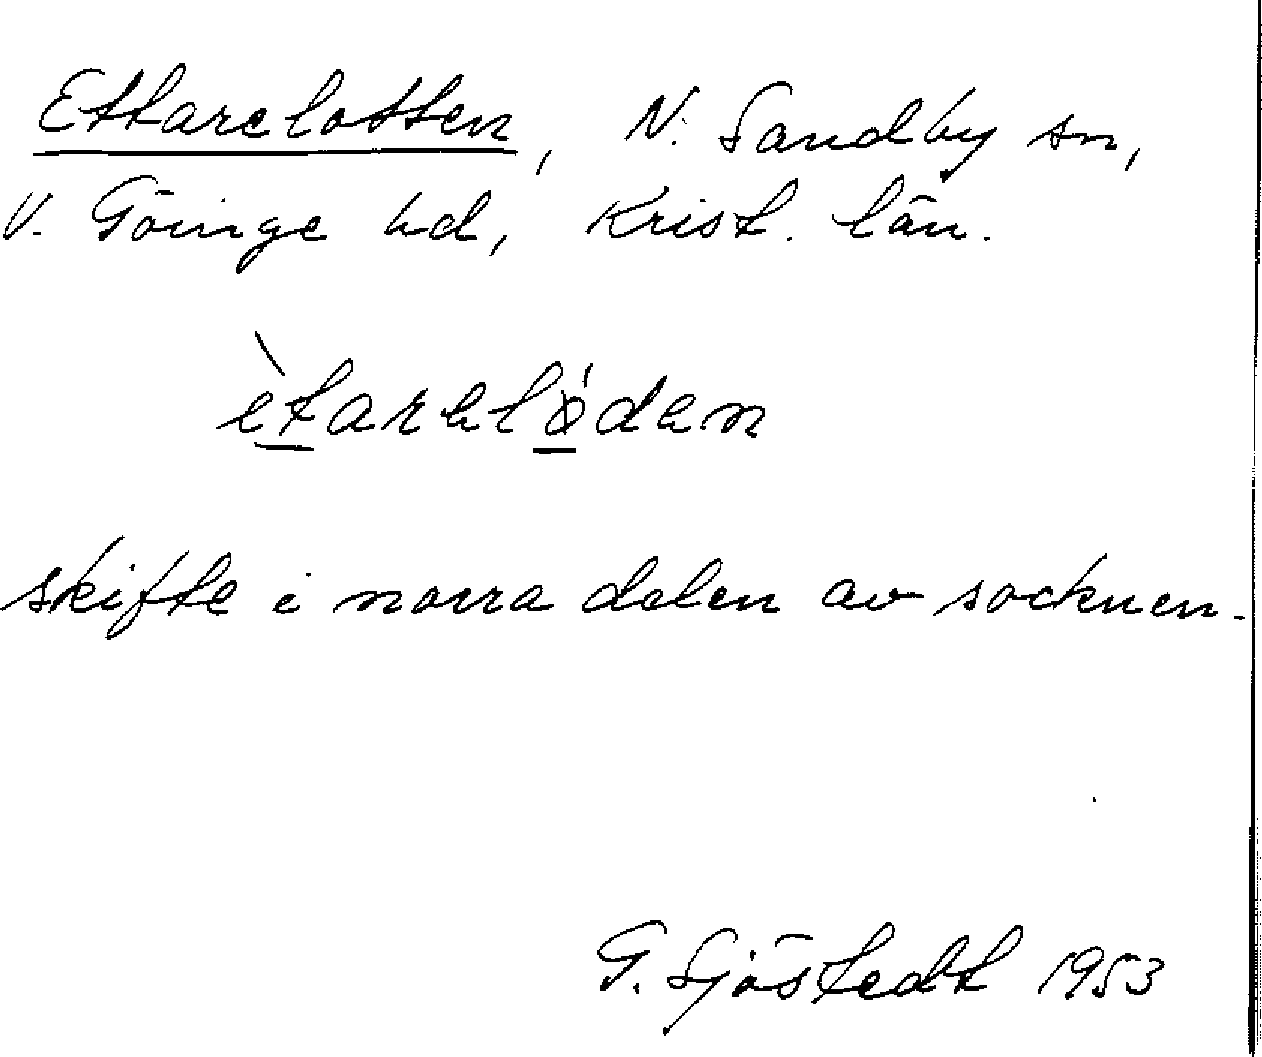 Ettarelotten, N. Sandby sn,
V. Göinge hd, Krist. län.
ètareløden
skifte i norra delen av socknen.
G. Sjöstedt 1953